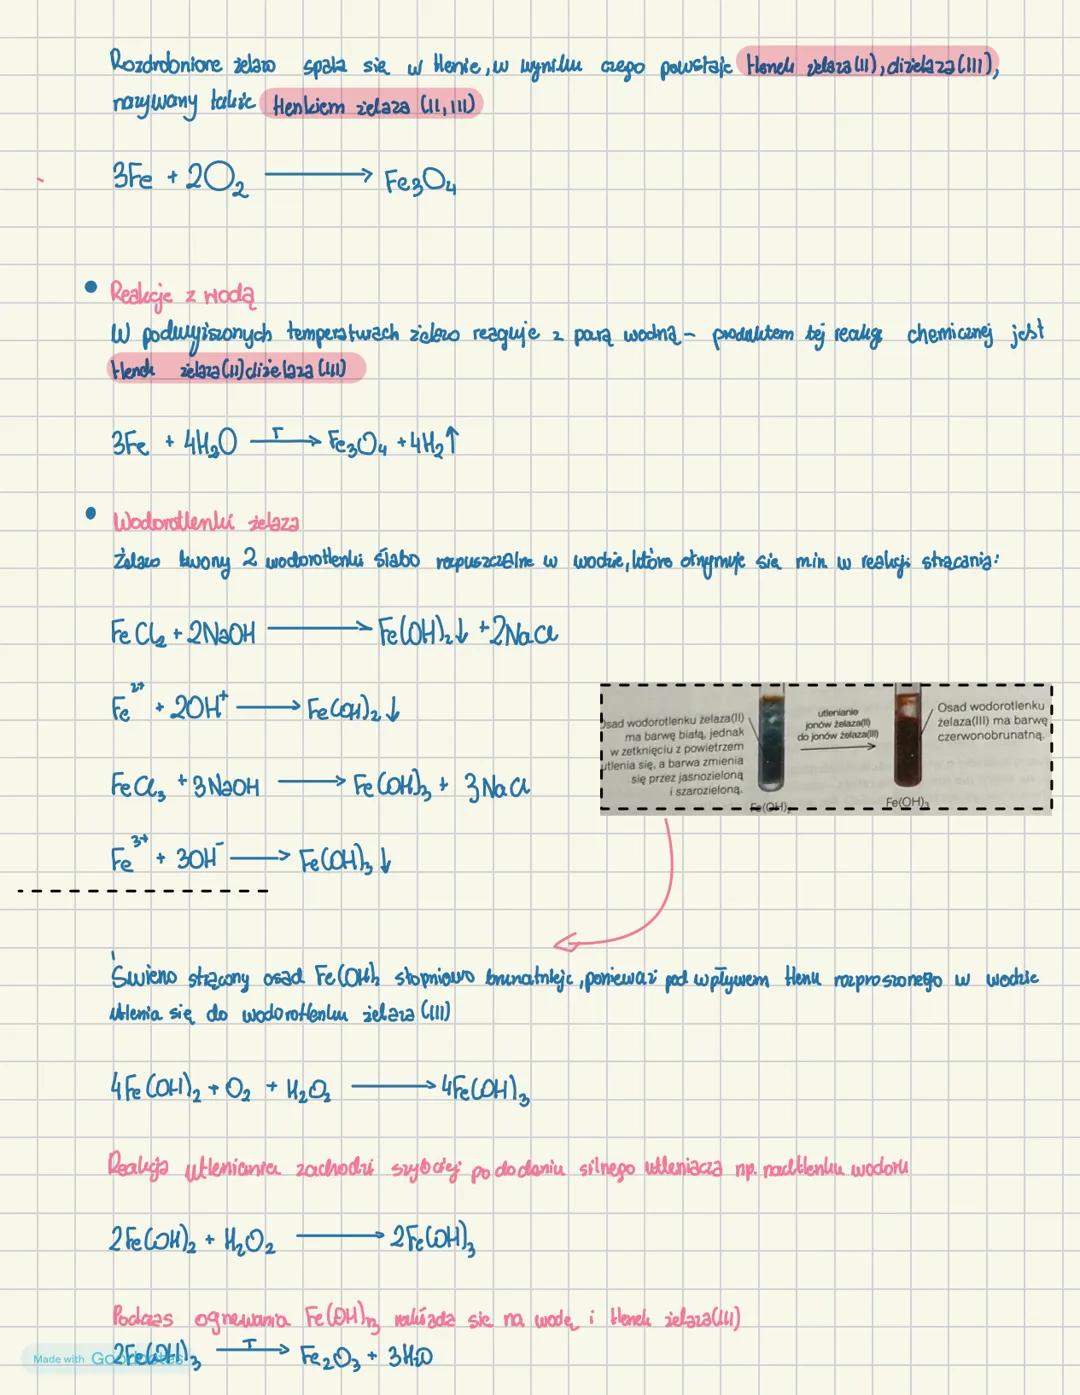 Rozdrobnione żelazo spala się w tlenie, w wyniku czego powstaje tlenek żelaza (II), diżelaza (III),
nazywany także tlenkiem żelaza (II, III)
3Fe + 2O₂ ⟶ Fe₃O₄
• Reakcje z wodą
W podwyższonych temperaturach żelazo reaguje z parą wodną – produktem tej reakcji chemicznej jest
tlenek żelaza (II) diżelaza (III)
3Fe + 4H₂O —T→ Fe₃O₄ + 4H₂↑
• Wodorotlenki żelaza
Żelazo tworzy 2 wodorotlenki słabo rozpuszczalne w wodzie, które otrzymuje się min w reakcji strącania:
FeCl₂ + 2NaOH ⟶ Fe(OH)₂↓ + 2NaCl
Fe²⁺ + 2OH⁺ ⟶ Fe(OH)₂↓
FeCl₃ + 3NaOH ⟶ Fe(OH)₃ + 3NaCl
Fe³⁺ + 3OH⁻ ⟶ Fe(OH)₃↓
Osad wodorotlenku żelaza(II)
ma barwę białą, jednak
w zetknięciu z powietrzem
utlenia się, a barwa zmienia
się przez jasnozieloną
i szarozieloną.
Fe(OH)₂
utlenianie
jonów żelaza(II)
do jonów żelaza(III)
Fe(OH)₃
Osad wodorotlenku
żelaza(III) ma barwę
czerwonobrunatną.
Świeżo strącony osad Fe(OH)₂ stopniowo brunatnieje, ponieważ pod wpływem tlenu rozproszonego w wodzie
utlenia się do wodorotlenku żelaza (III)
4Fe(OH)₂ + O₂ + H₂O₂ ⟶ 4Fe(OH)₃
Reakcja utleniania zachodzi szybciej po dodaniu silnego utleniacza np. nadtlenku wodoru
2Fe(OH)₂ + H₂O₂ ⟶ 2Fe(OH)₃
Podczas ogrzewania Fe(OH)₃ rozkłada się na wodę i tlenek żelaza (III)
2Fe(OH)₃ —T→ Fe₂O₃ + 3H₂O
Made with Goodnotes